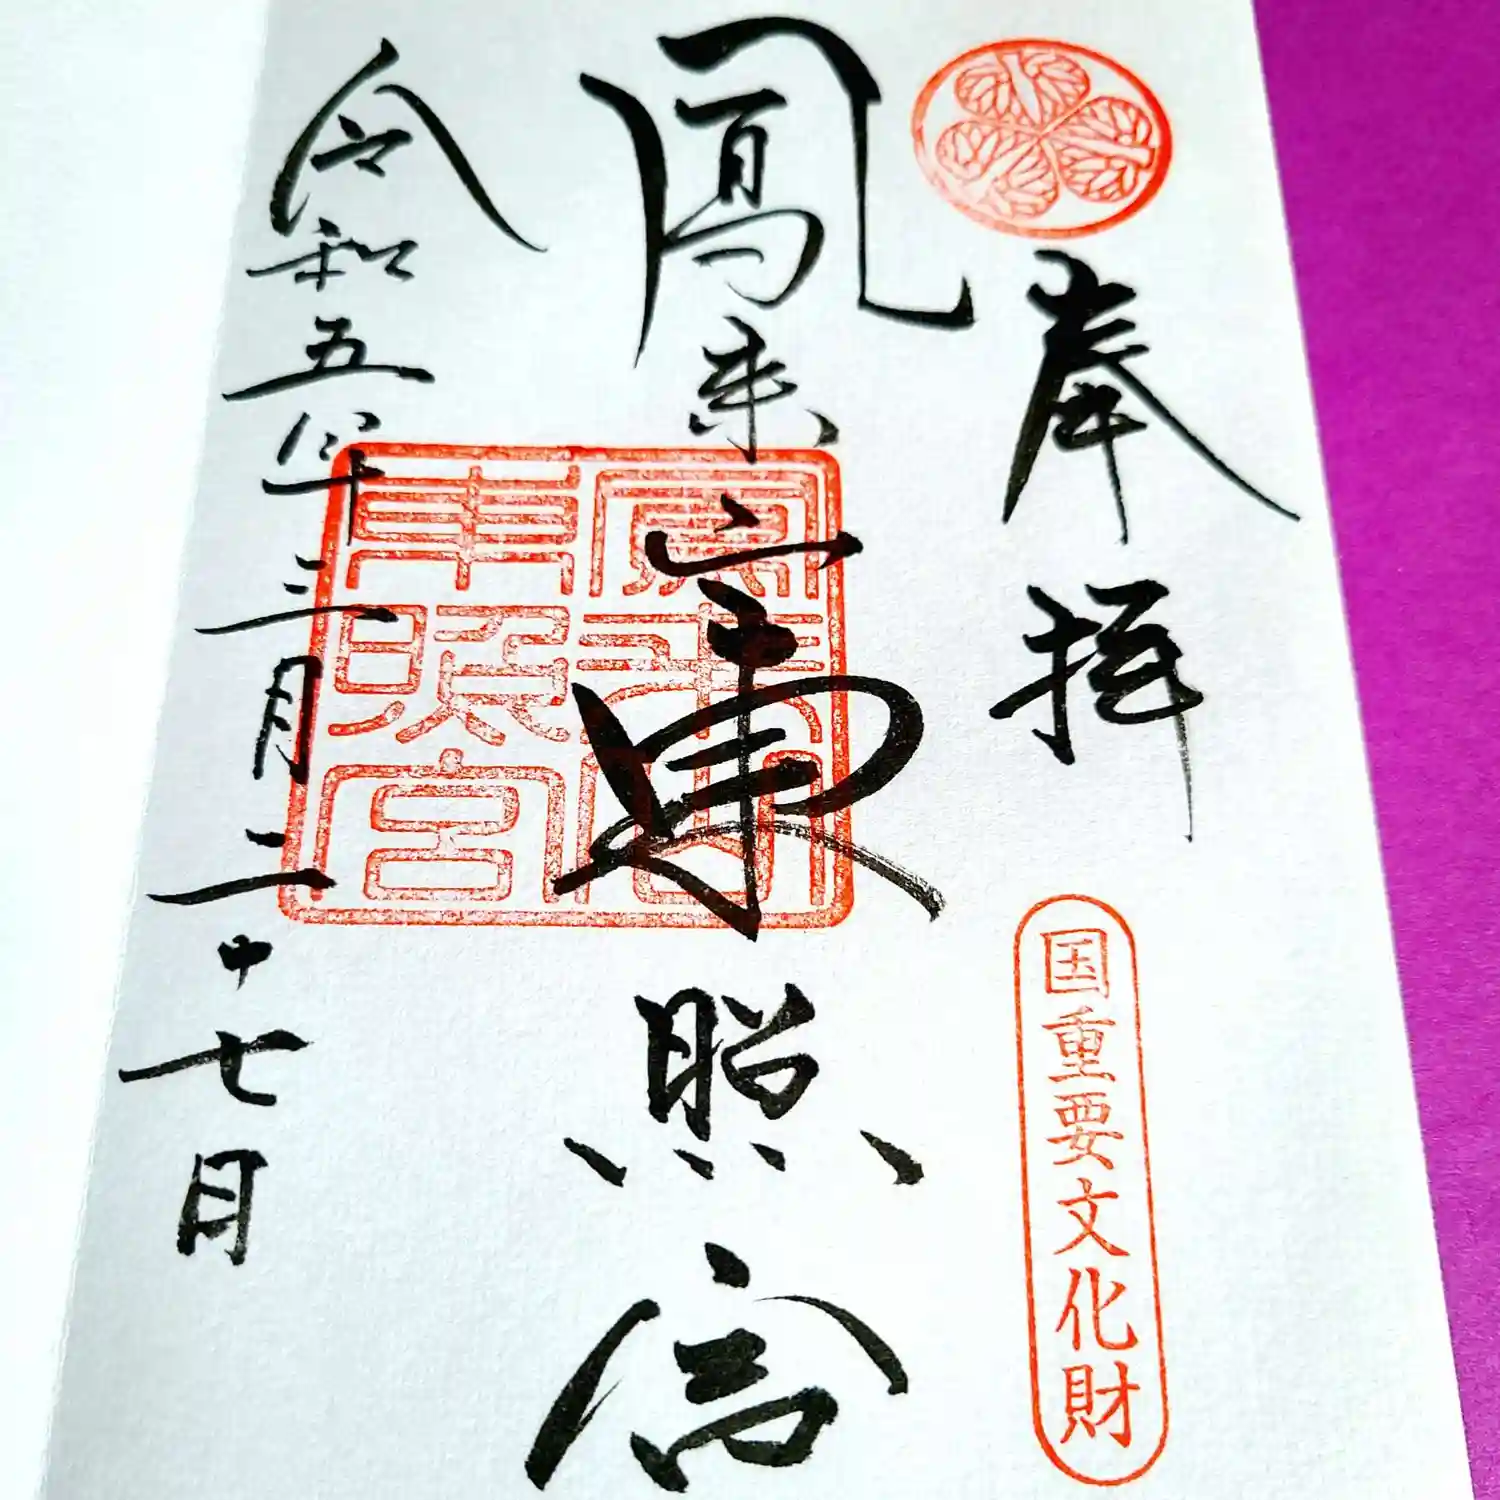 奉拝
国重要文化財
鳳来山東照宮
鳳来山東照宮
令和五年三月二十七日